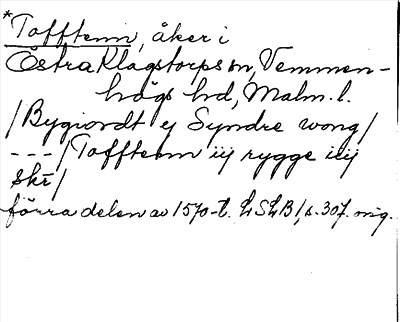 *Tofftenn, åker i
Östra Klagstorps sn, Vemmen-
högs hd, Malm. l.
/Bygiordt ej Syndre wong/
---/Tofftenn iij rygge iiij
skr/
förra delen av 1570-t. LSLB 1, s. 307. mig.